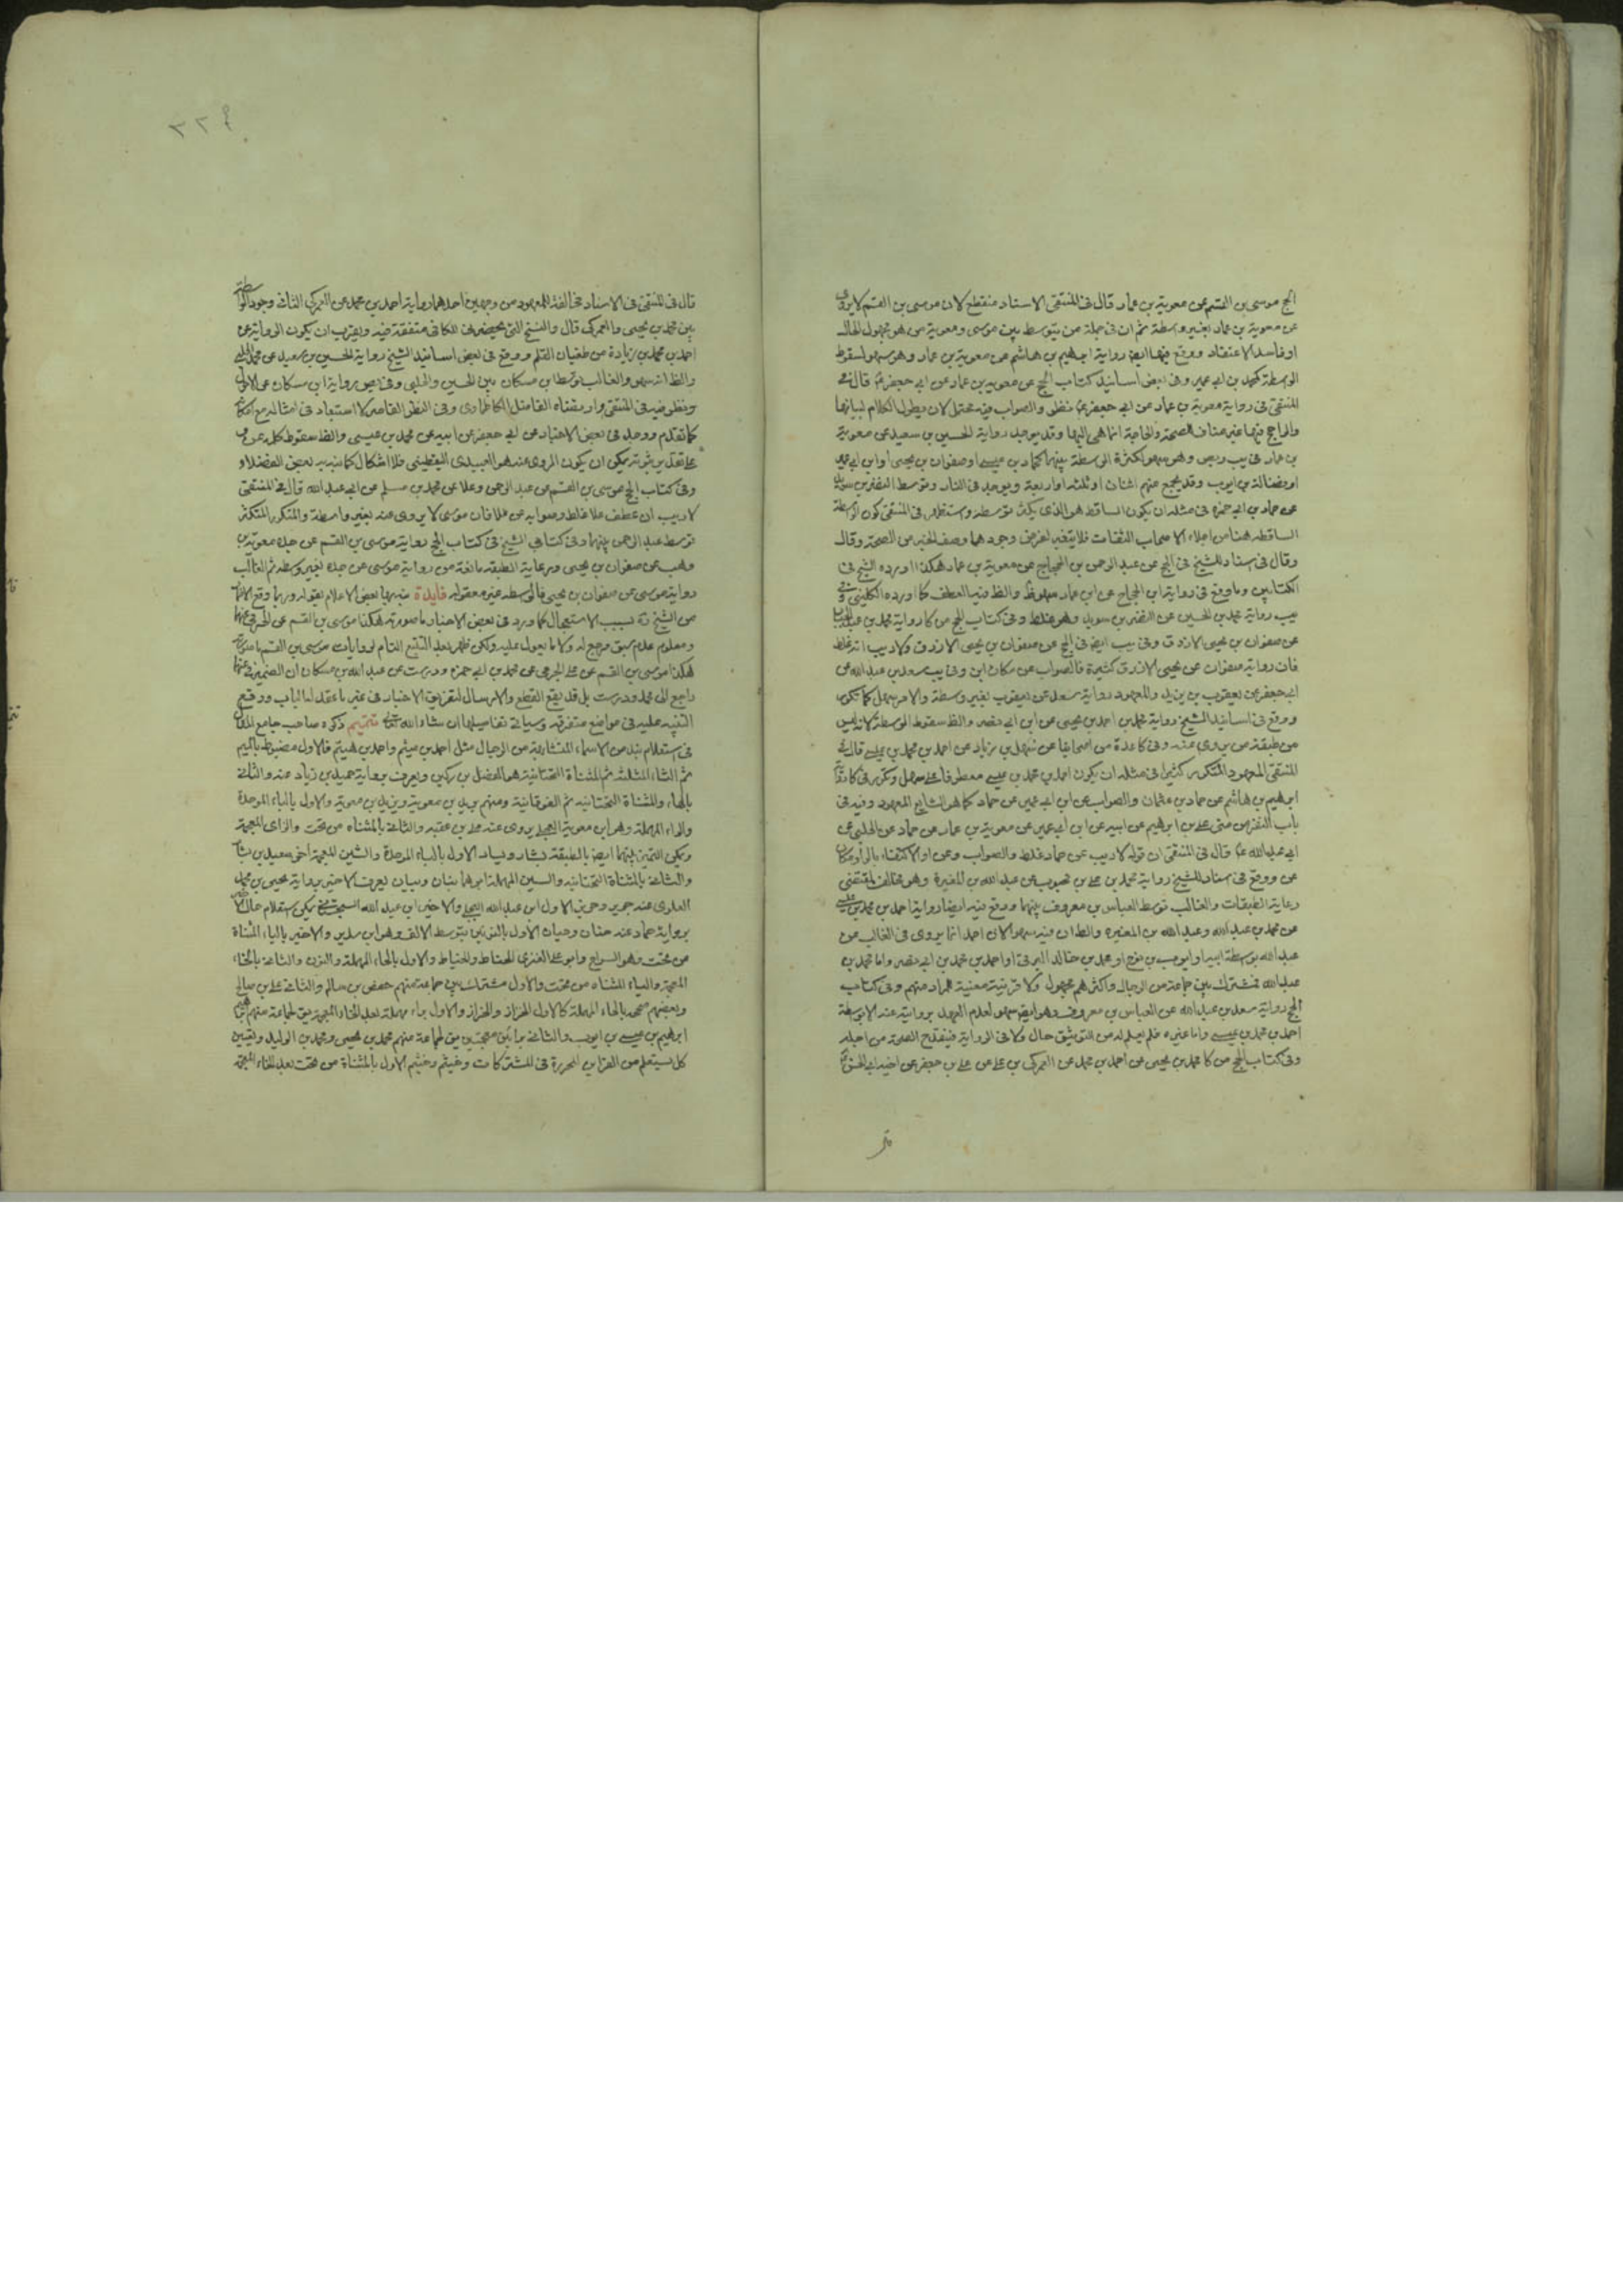 الحج موسى بن القسم عن معوية بن عمار قال فى المنتقى الاسناد منقطع لان موسى بن القسم لا يروى
عن معوية بن عمار بغير واسطة ثم ان فى جملة من يتوسط بين موسى ومعوية من هو مجهول الحال
او فاسد الاعتقاد ووقع فيها ايضا رواية ابراهيم بن هاشم عن معوية بن عمار وهو سهو لسقوط
الواسطة كمحمد بن ابى عمير وفى بعض اسانيد كتاب الحج عن معوية بن عمار عن ابى جعفر ع قال فى
المنتقى فى رواية معوية بن عمار عن ابى جعفر ع نظر والصواب فيه محتمل لان يطول الكلام لبيانها
والراجح فيها غير مناف للصحة والحاجة انما هى اليها وقد يوجد رواية الحسين بن سعيد عن معوية
بن عمار فى يب وبص وهو سهو لكثرة الواسطة بينهما كحماد بن عيسى او صفوان بن يحيى او ابن ابى عمير
او فضالة بن ايوب وقد يجمع منهم اثنان او ثلثة او اربعة ويوجد فى النادر توسط النضر بن سويد
عن حماد بن ابى حمزه فى مثله ان يكون الساقط هو الذى يكثر توسطه واستظهر فى المنتقى كون الواسطة
الساقطه هنا من اجلاء الاصحاب الثقات فلا يتغير لفرض وجودها وصف الخبر من الصحة وقال
وقال فى اسناد للشيخ فى الحج عن عبد الرحمن بن الحجاج عن معوية بن عمار هكذا اورده الشيخ فى
الكتابين وما وقع فى رواية ابن الحجاج عن ابن عمار سهو ظ والظ فيه العطف كما اورده الكلينى وفى
يب رواية محمد بن الحسين عن النضر بن سويد وهو غلط وفى كتاب الحج من كا رواية محمد بن عبد الجبار
عن صفوان بن يحيى الازرق وفى يب ايضا فى الحج عن صفوان بن يحيى الازرق ولا ريب انه غلط
فان رواية صفوان عن يحيى الازرق كثيرة فالصواب عن مكان ابن وفى يب سعد بن عبد الله عن
ابى جعفر عن يعقوب بن يزيد والمعهود رواية سعد عن يعقوب بغير واسطة والامر سهل كما تكرر
ووقع فى اسانيد الشيخ رواية محمد بن احمد بن يحيى عن ابن ابى نصر والظ سقوط الواسطة لانه ليس
من طبقة من يروى عنه وفى كا عدة من اصحابنا عن سهل بن زياد عن احمد بن محمد بن عيسى قال فى
المنتقى المعهود المتكرر كثيرا فى مثله ان يكون احمد بن محمد بن عيسى معطوفا على سهل وتكرر فى كا رواية
ابرهيم بن هاشم عن حماد بن عثمان والصواب عن ابن ابى عمير عن حماد كما هو الشايع المعهود وفيه فى
باب النفر من منى على بن ابرهيم عن ابيه عن ابن ابى عمير عن معوية بن عمار عن حماد عن الحلبى عن
ابى عبد الله ع قال فى المنتقى ان قوله لا ريب عن حماد غلط والصواب وعن او الاكتفاء بالواو مكان
عن ووقع فى اسناد للشيخ رواية محمد بن على بن محبوب عن عبد الله بن المغيرة وهو مخالف لمقتضى
رعاية الطبقات والغالب توسط العباس بن معروف بينهما ووقع فيه ايضا رواية احمد بن محمد بن عيسى
عن محمد بن عبد الله وعبد الله بن المغيره والظ ان فيه سهوا لان احمد انما يروى فى الغالب عن
عبد الله بوسطة ابيه او ايوب بن نوح او محمد بن خالد البرقى او احمد بن محمد بن ابى نصر واما محمد بن
عبد الله فمشترك بين جماعة من الرجال واكثرهم مجهول ولا قرينة معنية للمراد منهم وفى كتاب
الحج رواية سعد بن عبد الله عن العباس بن معروف وهو ايضا سهو لعدم العهد بروايته عنه الا بوسطة
احمد بن محمد بن عيسى واما غيره فلم يعلم له من التوثيق حال ولا فى الرواية فيقدح الصحة من اجله
وفى كتاب الحج من كا محمد بن يحيى عن احمد بن محمد عن العمركى بن على عن على بن جعفر عن اخيه ابى الحسن ع
قال
٢٢٩
قال فى المنتقى فى الاسناد مخالفة للمعهود من وجهين احدهما رواية احمد بن محمد عن العمركى الثانى وجود الواسطة
بين محمد بن يحيى والعمركى قال والنسخ التى تحضرنى للكافى متفقة فيه ويقرب ان يكون الرواية عن
احمد بن محمد بن زيادة من طغيان القلم ووقع فى بعض اسانيد الشيخ رواية الحسين بن سعيد عن محمد الحلبى
والظ انه سهو والغالب توسط ابن مسكان بين الحسين والحلبى وفى بص رواية ابن مسكان عن الاول
ونظر فيه فى المنتقى وارتضاه الفاضل الكاظماوى وفى النظر القاصر لا استبعاد فى امثاله مع امكانه
كما تقدم ووجد فى بعض الاخبار عن ابى جعفر عن ابيه عن محمد بن عيسى والظ سقوط كلمة عن
على تقدير ثبوته يمكن ان يكون المروى عنه هو العبيدى اليقطينى فلا اشكال كما نبه به بعض الفضلاء
وفى كتاب الحج موسى بن القسم عن عبد الرحمن وعلا عن محمد بن مسلم عن ابى عبد الله قال فى المنتقى
لا ريب ان عطف علا غلط وصوابه عن علا فان موسى لا يروى عنه بغير واسطة والمتكرر المتكثر
توسط عبد الرحمن بينهما وفى كتابى الشيخ فى كتاب الحج رواية موسى بن القسم عن جده معوية بن
وهب عن صفوان بن يحيى ورعاية الطبقه مانعة من رواية موسى عن جده بغير وسطه ثم الغالب
رواية موسى عن صفوان بن يحيى فالوسطه غير معقوله فايدة نبه بها بعض الاعلام بقوله وربما وقع
من الشيخ ره بسبب الاستعجال كما ورد فى بعض الاخبار ما صورته هكذا موسى بن القسم عن الجرمى عنهما
ومعلوم عدم سبق مرجع له ولا ما يعول عليه ولكن ظهر بعد التتبع التام لروايات موسى بن القسم ما صورته
هكذا موسى بن القسم عن على الجرمى عن محمد بن ابى حمزه ودرست عن عبد الله بن مسكان ان الضمير فى عنهما
راجع الى محمد ودرست بل قد يقع القطع والارسال لتفريق الاخبار فى غير ما عقد له الباب ووقع
التنبيه عليه فى مواضع متفرقه وسياتى تفاصيلها ان شاء الله تعالى تتميم ذكره صاحب جامع المقال
فى استعلام نبذ من الاسماء المتشابهة من الرجال مثل احمد بن ميثم واحمد بن هيثم فالاول مضبوط بالميم
ثم الثاء المثلثه ثم المثناة التحتانية هو الفضل بن دكين ويعرف برواية حميد بن زياد عنه والثانى
بالهاء والمثناة التحتانيه ثم الفوقانية ومنهم بريد بن معوية ويزيد بن معوية والاول بالباء الموحدة
والراء المهملة وهو ابن معوية العجلى يروى عنه على بن عقبه والثانى بالمثناه من تحت والزاى المعجمة
ويمكن التميز بينهما ايضا بالطبقة بشار ويسار الاول بالباء الموحدة والشين المعجمة اخى سعيد بن يسار
والثانى بالمثناة التحتانيه والسين المهملة ابوهما بنان وبيان يعرف الاخير برواية يحيى بن محمد
العلوى عنه جرير وحريز الاول ابن عبد الله البجلى والاخير ابن عبد الله السجستانى يمكن استعلام حال
برواية حماد عنه حنان وحيان الاول بالنونين بتوسط الالف وهو ابن سدير والاخير بالياء المثناة
من تحت وهو السراج وابو على العنزى الحناط والخياط والاول بالحاء المهملة والنون والثانى بالخاء
المعجمة والياء المثناه من تحت والاول مشترك بين جماعة منهم حفص بن سالم والثانى على بن صالح
وبعضهم صحح بالحاء المهملة كالاول الخزاز والخراز والاول براء مهملة بعد الخاء المعجمة يق لجماعة منهم
ابرهيم بن عيسى بن ايوب والثانى بزائين معجمتين يق لجماعة منهم محمد بن يحيى ومحمد بن الوليد ويتعين
كل يستعلم من القراين المحررة فى المشتركات وخيثم وخثيم الاول بالمثناة من تحت بعد الخاء المعجمة